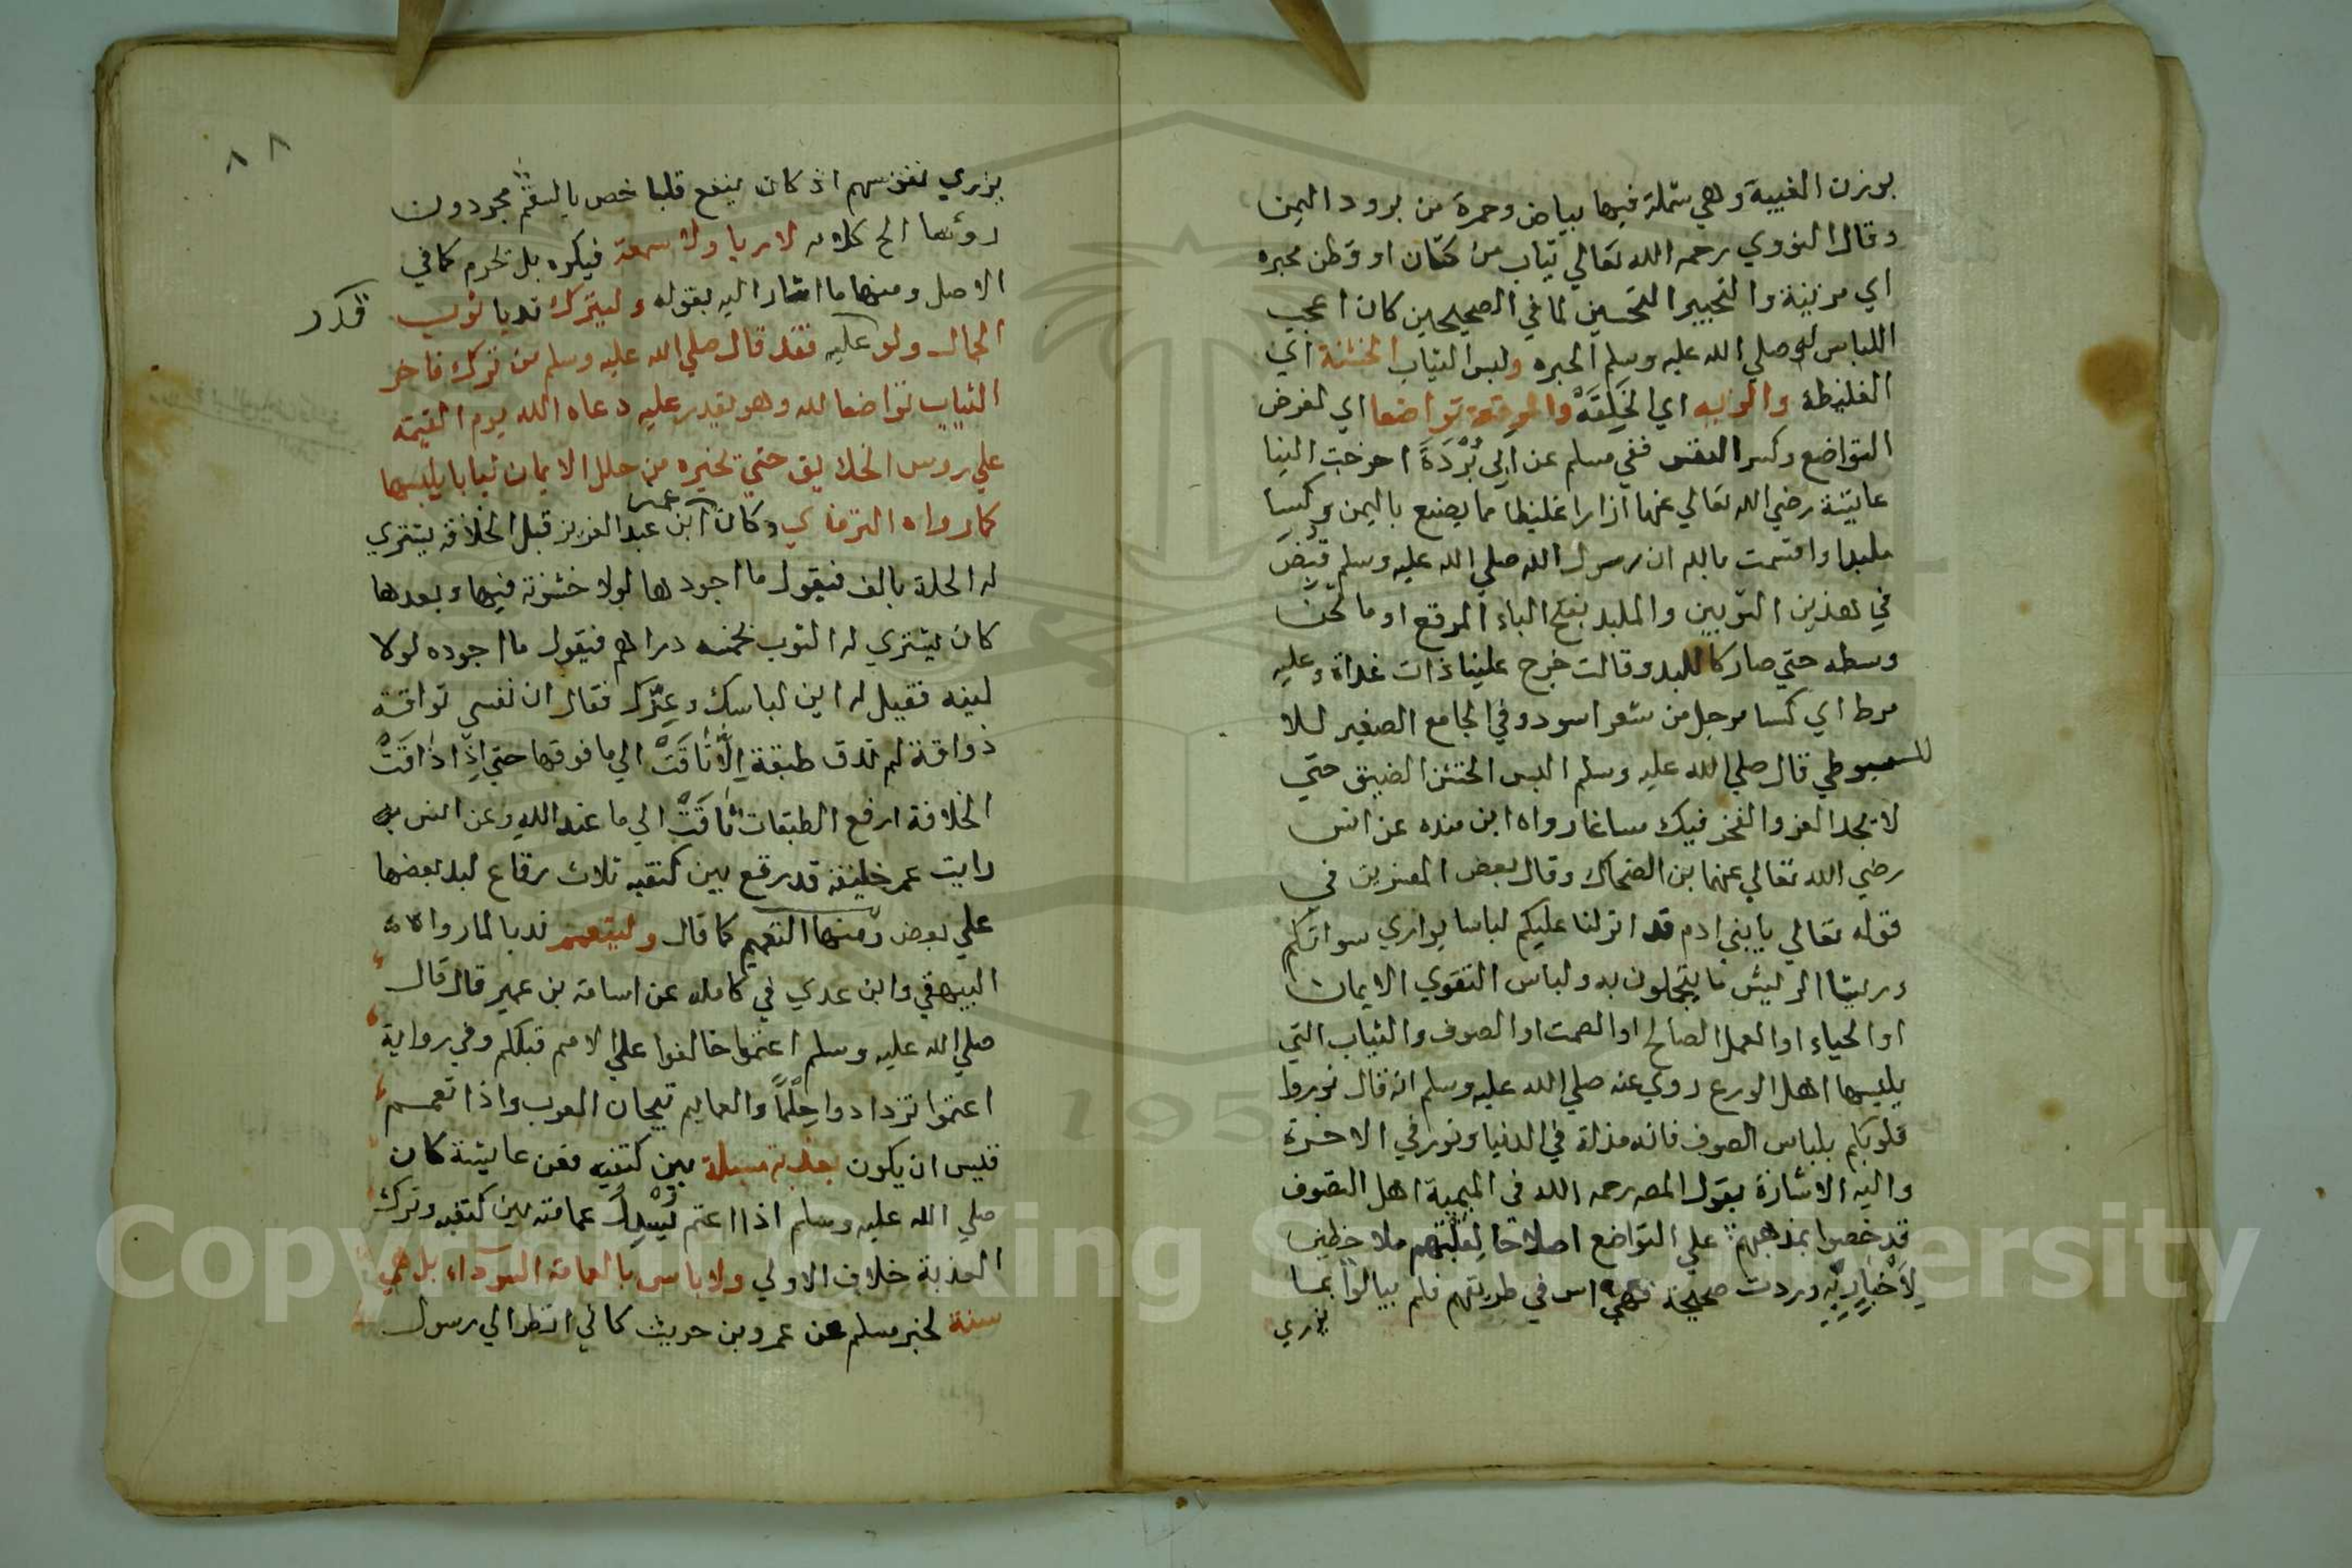 بوزن الغيبة وهي شملة فيها بياض وحمرة من برود اليمن
وقال النووي رحمه الله تعالي ثياب من كتان او قطن محبره
اي مزينة والتحبير التحسين لما في الصحيحين كان اعجب
اللباس له صلي الله عليه وسلم الحبره ولبس الثياب الخشنة اي
الغليظة والرثيه اي الخَلِقَةْ والمرقعة تواضعا اي لغرض
التواضع وكسر النفس ففي مسلم عن ابي بُرْدَةَ اخرجت الينا
عايشة رضي الله تعالي عنها ازارا غليظا مما يصنع باليمن وكسا
ملبدا واقسمت بالله ان رسول الله صلي الله عليه وسلم قُبِضَ
في هذين الثوبين والملبد بفتح الباء المرقع او ما ثخن
وسطه حتي صار كاللبد وقالت خرج علينا ذات غداة وعليه
مرط اي كسا مرجل من شعر اسود وفي الجامع الصغير للا
للسيوطي قال صلي الله عليه وسلم البس الخشن الضيق حتي
لا تجد العز والفخر فيك مساغا رواه ابن منده عن انس
رضي الله تعالي عنهما بن الضحاك وقال بعض المفسرين في
قوله تعالي يا بني ادم قد انزلنا عليكم لباسا يواري سواتكم
وريشا الريش ما يتجملون به ولباس التقوي الايمان
او الحياء او العمل الصالح او الصمت او الصوف والثياب التي
يلبسها اهل الورع روي عنه صلي الله عليه وسلم انه قال نوروا
قلوبكم بلباس الصوف فانه مذلة في الدنيا ونور في الاخرة
واليه الاشارة بقول المصه رحمه الله في الميمية اهل التصوف
قد خصوا بمذهبهم علي التواضع اصلاحا لقلبهم ملاحظين
لِاَخْبَارٍ بِهِ وردت صحيحة فهي اس في طريقهم فلم يبالوا بما
يزري
٨٨
يزري نفوسهم اذ كان ينفع قلبا خص بالسقم مجودون
روئها الخ كلامه لا ريا ولا سمعة فيكره بل يحرم كما في
الاصل ومنها ما اشار اليه بقوله وليترك ندبا ثوب
قدر
الجمال ولو عليه فقد قال صلي الله عليه وسلم من ترك فاخر
الثياب تواضعا لله وهو يقدر عليه دعاه الله يوم القيمة
علي روس الخلايق حتي يخيره من حلل الايمان ثيابا يلبسها
كما رواه الترمذي وكان ابن عبد العزيز قبل الخلافة يشتري
عمر
له الحلة بالف فيقول ما اجودها لولا خشونة فيها وبعدها
كان يشتري له الثوب بخمسه دراهم فيقول ما اجوده لولا
لينه فقيل له اين لباسك وعِزُّك فقال ان نفسي تواقة
ذواقة لم تذق طبقة اِلَّا تَاقَتْ الي ما فوقها حتي اِذَا ذَاقَتْ
الخلافة ارفع الطبقات تَاقَتْ الي ما عند الله وعن انس
رايت عمر خليفة قد رقع بين كتفيه ثلاث رقاع لبد بعضها
علي بعض ومنها التعميم كما قال وليتعمم ندبا لما رواه
البيهقي وابن عدي في كامله عن اسامة بن عمير قال قال
صلي الله عليه وسلم اعتموا خالفوا علي الامم قبلكم وفي رواية
اعتموا تزدادوا حِلْمًا والعمايم تيجان العرب واذا تعمم
فليس ان يكون بعذبة مسبلة بين كتفيه فعن عايشة كان
صلي الله عليه وسلم اذا اعتم يُسْدِلُ عمامته بين كتفيه وترك
العذبة خلاف الاولي ولا باس بالعمامة السوداء بل هي
سنة لخبر مسلم عن عمرو بن حريث كاني انظر الي رسول
Copyright © King Saud University
195